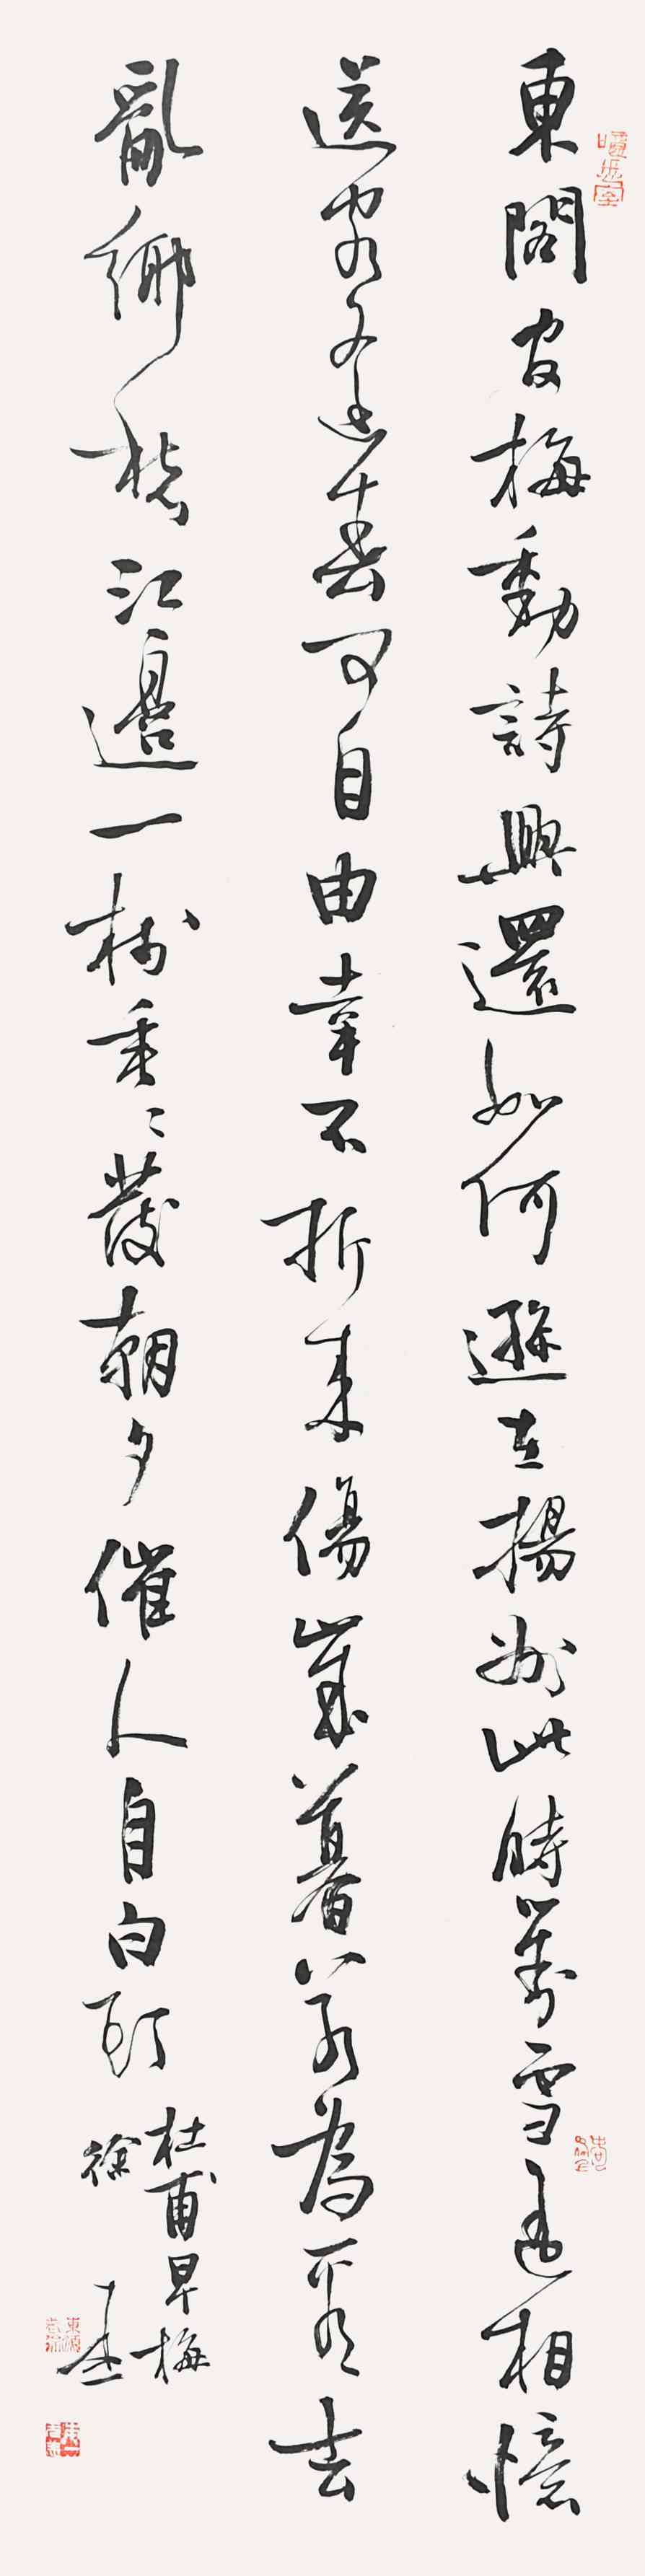 東閣官梅動詩興還如何遜在揚州此時對雪遙相憶
送客逢春可自由幸不折來傷歲暮若為看去
亂鄉愁江邊一樹垂〻發朝夕催人自白頭
杜甫早梅
徐